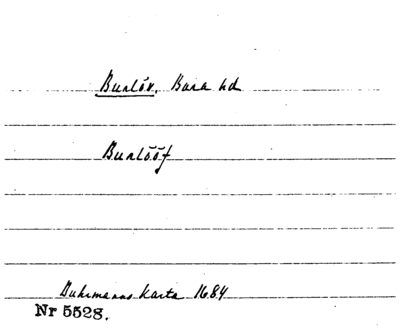 Burlöv. Bara hd
Burlööf
Buhrmanns karta 1684
Nr 5528.